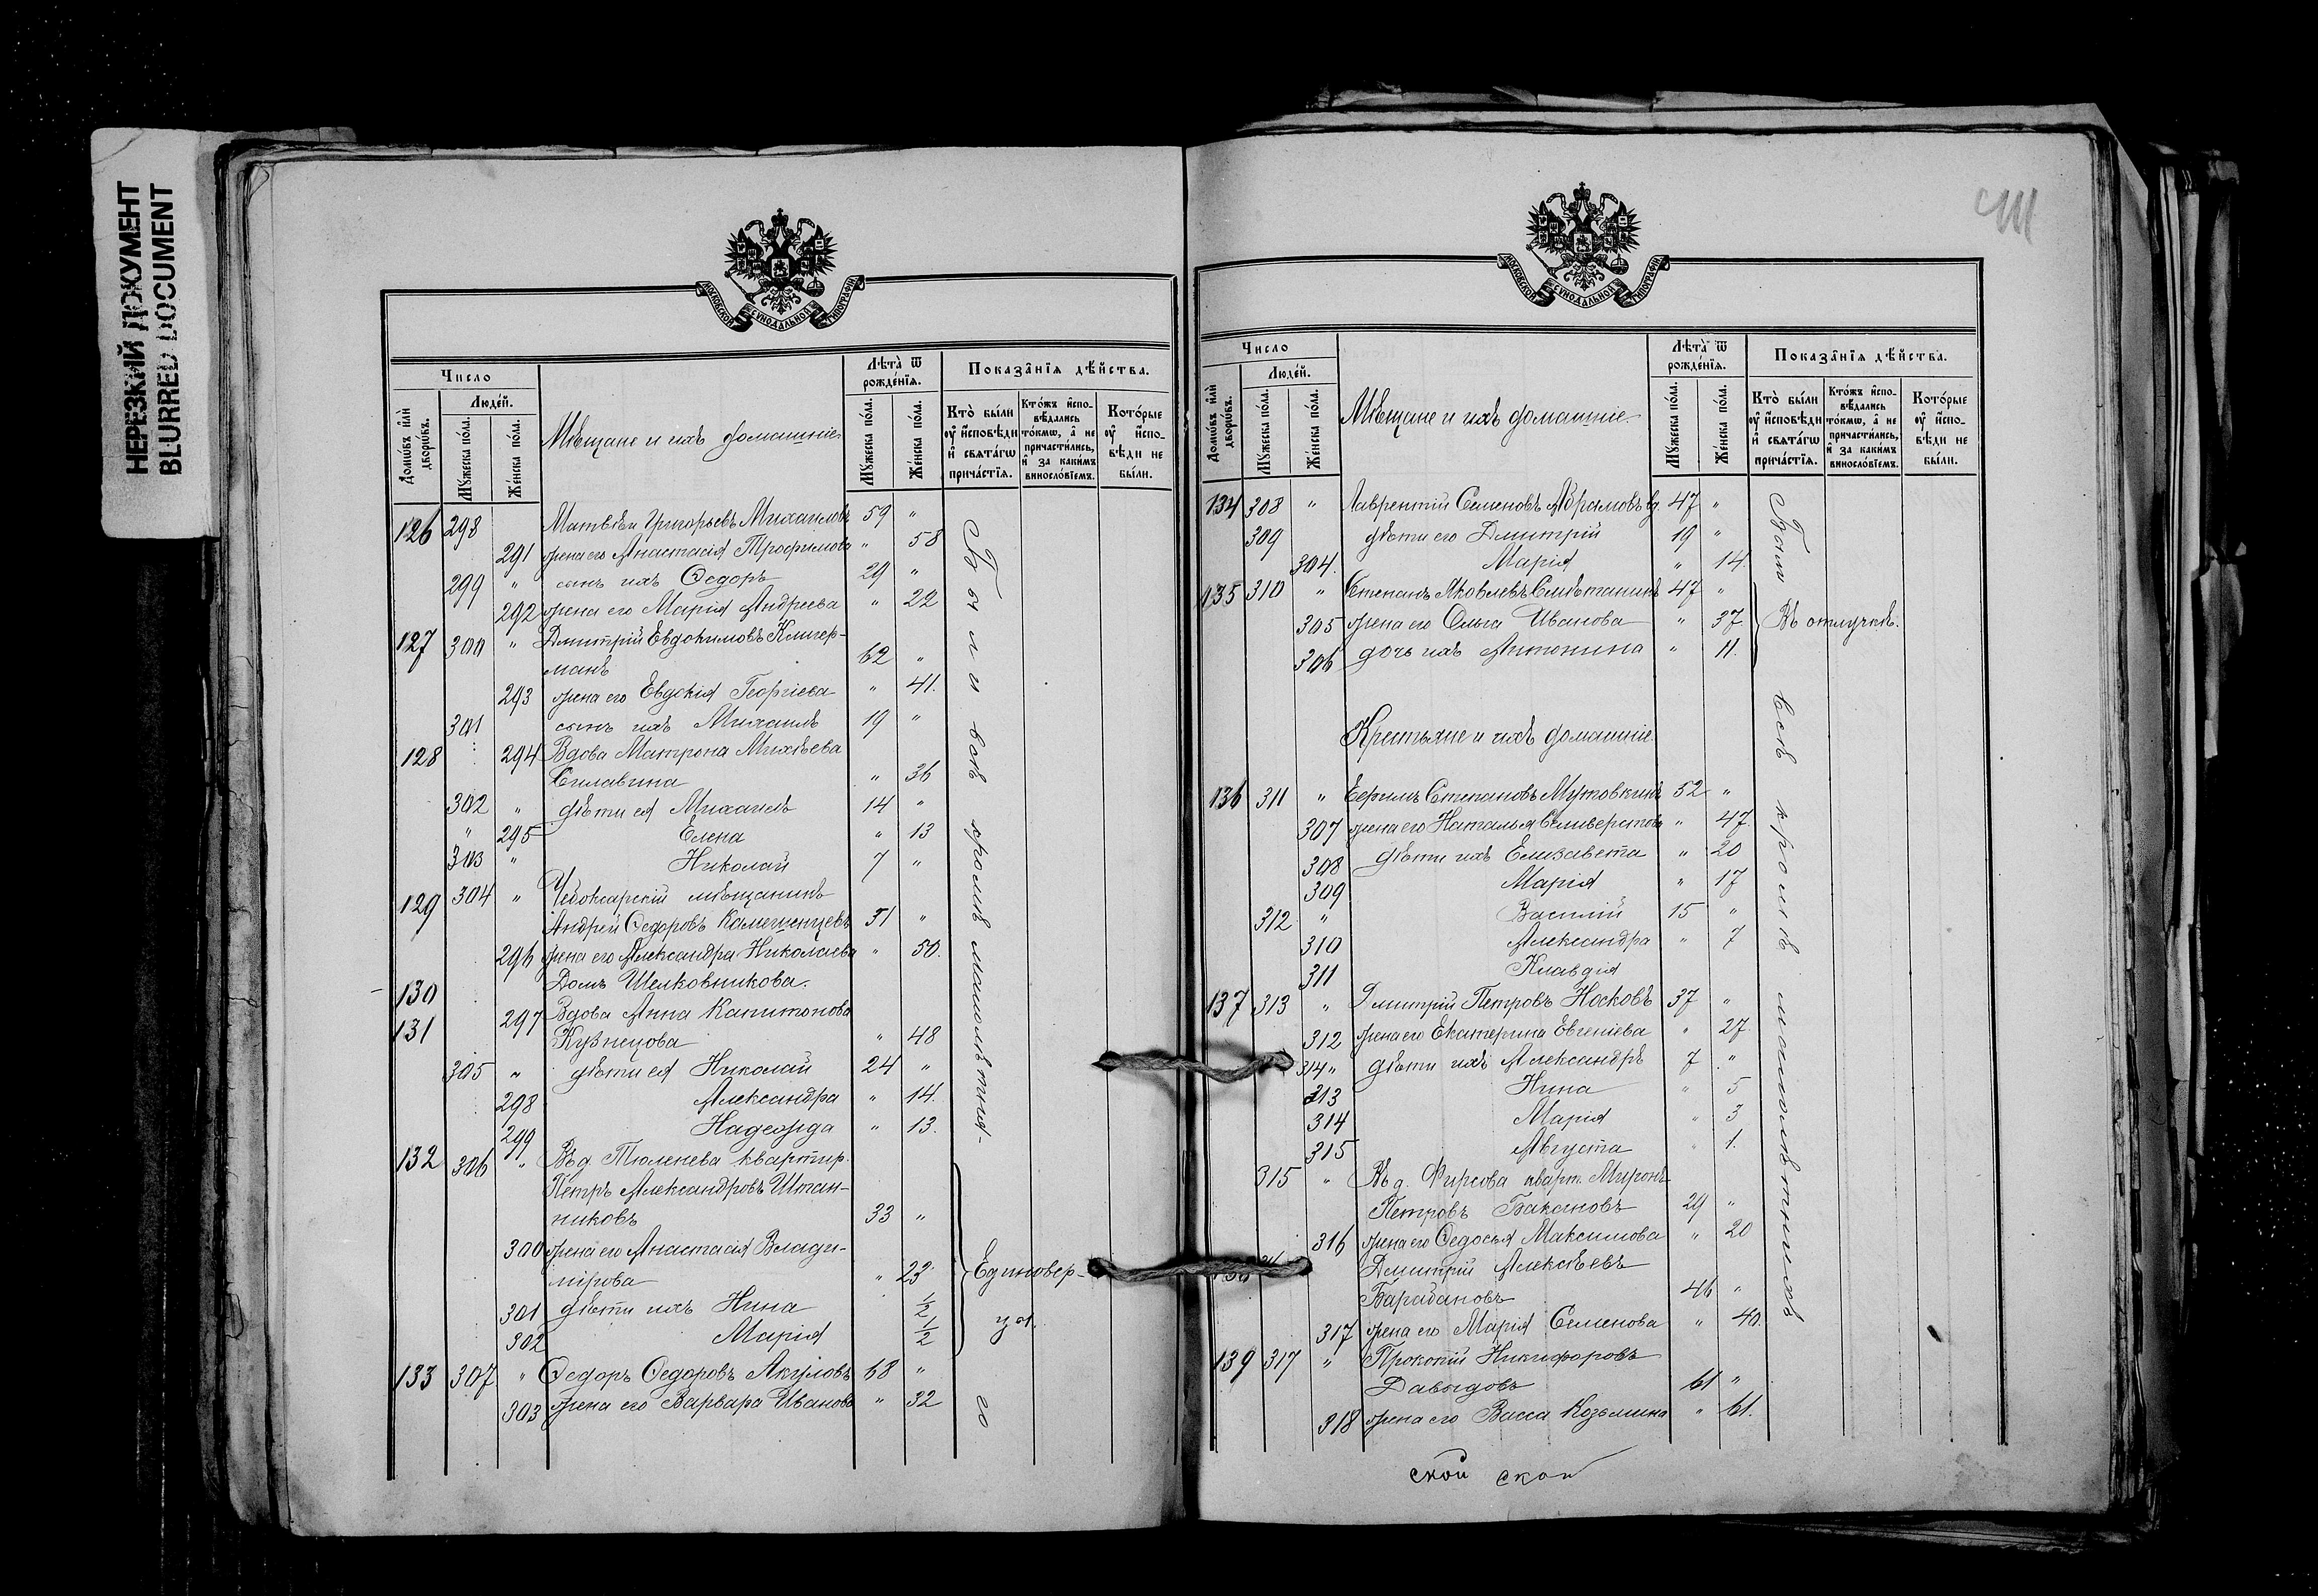 НЕРЕЗКИЙ ДОКУМЕНТ
BLURRED DOCUMENT
МОСКОВСКОЙ СѴНОДАЛЬНОЙ ТИПОГРАФІИ
Число
Людéй.
Домѡ́въ и҆лѝ дворѡ́въ.
Мꙋ́жеска по́ла.
Же́нска по́ла.
Мѣщане и ихъ домашніе.
Лѣта̀ ѿ рожде́нїѧ.
Мꙋ́жеска по́ла.
Же́нска по́ла.
Показа̑нїѧ дѣ́йства.
Кто̀ бы́ли ᲂу҆ и҆́сповѣди и҆ свѧта́гѡ прича́стїѧ.
Кто́жъ и҆сповѣ́дались то́кмѡ, а҆ не причасти́лись, и҆ за каки́мъ виносло́вїемъ.
Кото́рые ᲂу҆ и҆́сповѣди не бы́ли.
126 298 Матвѣй Григорьевъ Михаиловъ 59 "
291 жена его Анастасія Трофимова " 58
299 " сынъ ихъ Ѳедоръ 29 "
292 жена его Марія Андреева " 22
127 300 " Дмитрій Евдокимовъ Клигер-
манъ 62 "
293 жена его Евдокія Георгіева " 41.
301 сынъ ихъ Михаилъ 19 "
128 294 Вдова Матрона Михѣева
Силавина " 36
302 " дѣти ея Михаилъ 14 "
" 295 Елена " 13
303 " Николай 7 "
129 304 " Чебоксарскій мѣщанинъ
Андрей Ѳедоровъ 51 "
296 жена его Александра Николаева " 50.
130 Домъ Шелковникова.
131 297 Вдова Анна Капитонова
Кузнецова " 48
305 " дѣти ея Николай 24 "
298 Александра " 14.
299 Надежда " 13.
132 306 " Въ д. Тюленева квартир.
Петръ Александровъ Штан-
никовъ 33 "
300 жена его Анастасія Влади-
мірова " 23
301 дѣти ихъ Нина 1/2
302 Марія 1/2
133 307 " Ѳедоръ Ѳедоровъ Акуловъ 68 "
303 жена его Варвара Иванова " 32
Были всѣ кромѣ малолѣтнія-
Единовер-
цы.
Число
Людéй.
Домѡ́въ и҆лѝ дворѡ́въ.
Мꙋ́жеска по́ла.
Же́нска по́ла.
Мѣщане и ихъ домашніе.
Лѣта̀ ѿ рожде́нїѧ.
Мꙋ́жеска по́ла.
Же́нска по́ла.
Показа̑нїѧ дѣ́йства.
Кто̀ бы́ли ᲂу҆ и҆́сповѣди и҆ свѧта́гѡ прича́стїѧ.
Кто́жъ и҆сповѣ́дались то́кмѡ, а҆ не причасти́лись, и҆ за каки́мъ виносло́вїемъ.
Кото́рые ᲂу҆ и҆́сповѣди не бы́ли.
МОСКОВСКОЙ СѴНОДАЛЬНОЙ ТИПОГРАФІИ
134 308 " Лаврентій Семеновъ Абрамовъ вд. 47 "
309 дѣти его Дмитрій 19 "
304. Марія " 14.
135 310 " Степанъ Яковлевъ Смѣтанинъ 47 "
305 жена его Ольга Иванова " 37
306 дочь ихъ Антонина " 11.
Въ отлучкѣ.
Крестьяне и ихъ домашніе.
136 311 " Ефимъ Степановъ Мутовкинъ 52 "
307 жена его Наталья Селиверстова " 47.
308 дѣти ихъ Елизавета " 20
309 Марія " 17
312 " Василій 15 "
310 Александра " 7
311 Клавдія
137 313 " Дмитрій Петровъ Носковъ 37 "
312 жена его Екатерина Евгеніева " 27.
314 " дѣти ихъ Александръ 7 "
313 Нина " 5
314 Марія " 3
315 Августа " 1.
315 " Въ д. Фирсова кварт. Миронъ
Петровъ Бакановъ 29 "
316 жена его Ѳедосья Максимова " 20
Дмитрій Алексѣевъ
Барабановъ 46 "
317 жена его Марія Семенова " 40.
139 317 " Прокопій Никифоровъ
Давыдовъ 61 "
318 жена его Васса Козьмина " 61.
всѣ кромѣ малолѣтнихъ
ской ской